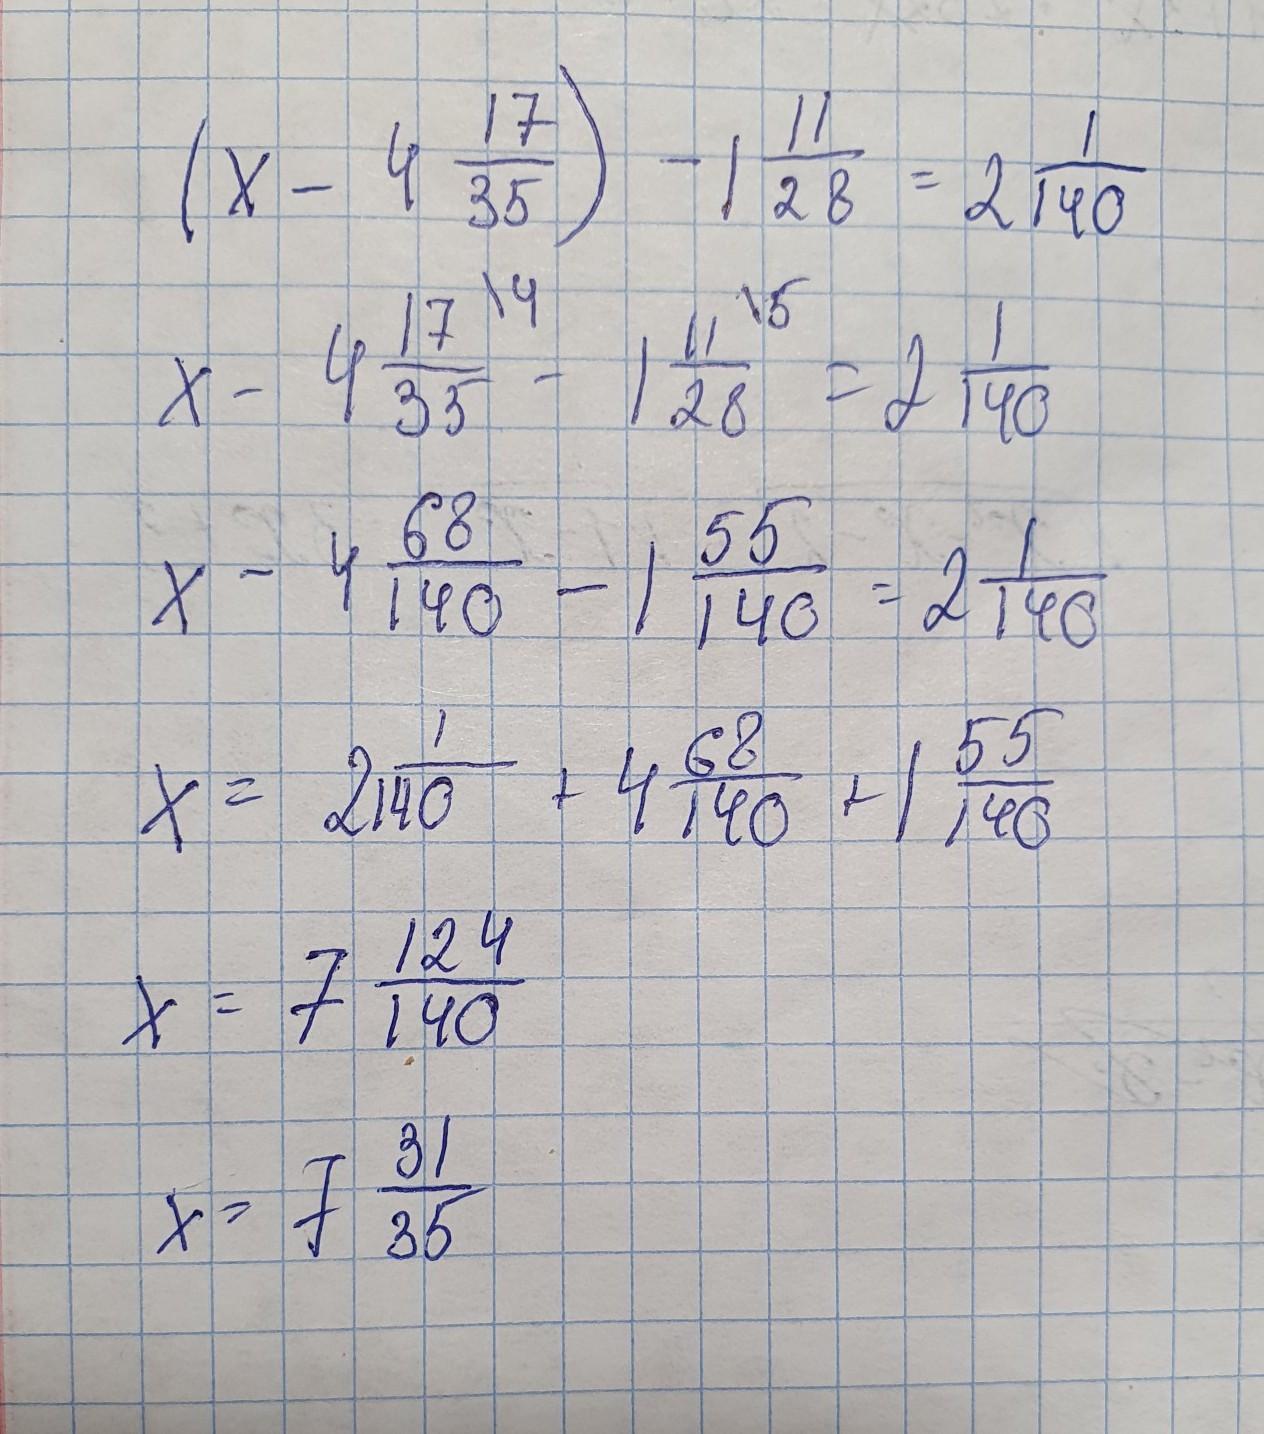 (x - 4 17/35) - 1 11/28 = 2 1/140
x - 4 17/35 \4 - 1 11/28 \5 = 2 1/140
x - 4 68/140 - 1 55/140 = 2 1/140
x = 2 1/140 + 4 68/140 + 1 55/140
x = 7 124/140
x = 7 31/35